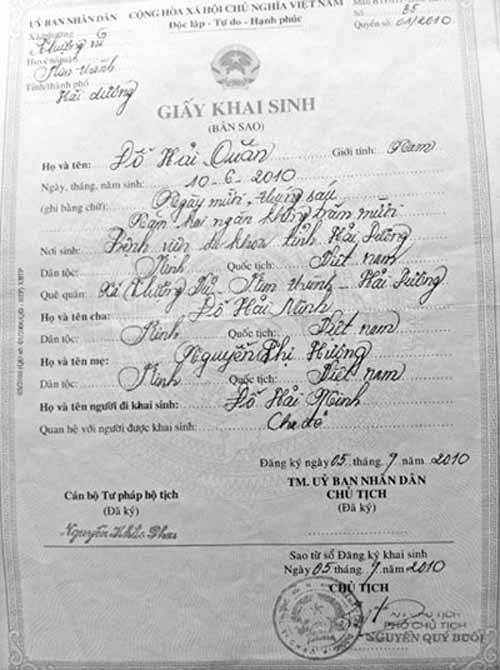 ỦY BAN NHÂN DÂN
CỘNG HÒA XÃ HỘI CHỦ NGHĨA VIỆT NAM
Độc lập - Tự do - Hạnh phúc
Số 35
Quyển số: 01/2010
Xã/phường
Huyện/quận
Kim thành
Tỉnh/thành phố
Hải dương
GIẤY KHAI SINH
(BẢN SAO)
Họ và tên: Đỗ Hải Quân Giới tính: Nam
Ngày, tháng, năm sinh: 10-6-2010
(ghi bằng chữ): Ngày mười, tháng sáu
Năm hai ngàn không trăm mười
Nơi sinh: Bệnh viện đa khoa tỉnh Hải Dương
Dân tộc: Kinh Quốc tịch: Việt nam
Quê quán: Xã Thượng Vũ - Kim thành - Hải Dương
Họ và tên cha: Đỗ Hải Ninh
Dân tộc: Kinh Quốc tịch: Việt nam
Họ và tên mẹ: Nguyễn Thị Hường
Dân tộc: Kinh Quốc tịch: Việt nam
Họ và tên người đi khai sinh: Đỗ Hải Ninh
Quan hệ với người được khai sinh: Cha đẻ
Đăng ký ngày 05 tháng 7 năm 2010
Cán bộ Tư pháp hộ tịch
(Đã ký)
TM. UỶ BAN NHÂN DÂN
CHỦ TỊCH
(Đã ký)
Sao từ sổ Đăng ký khai sinh
Ngày 05 tháng 7 năm 2010
CHỦ TỊCH
PHÓ CHỦ TỊCH
NGUYỄN QUÝ BUỔI